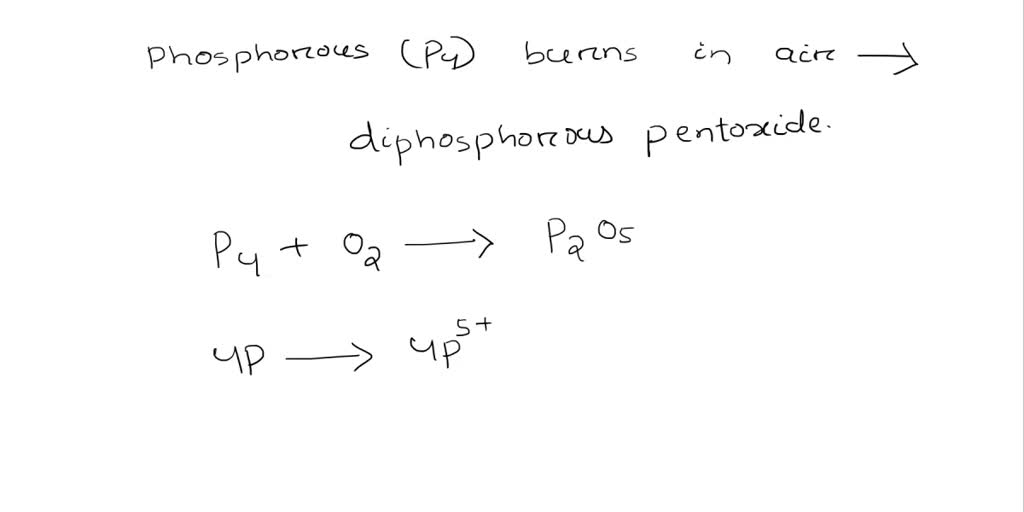 Phosphorous (P4) burns in air →
diphosphorous pentoxide.
P4 + O2 → P2O5
4P → 4P5+